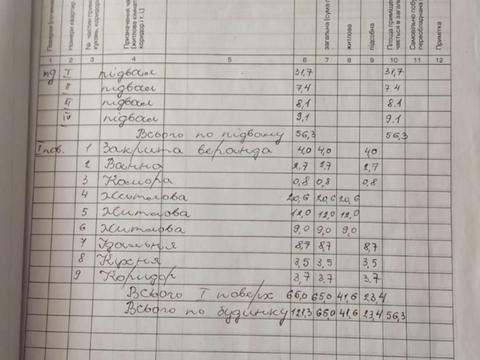 1 2 3 4 5 6 7 8 9 10 11 12
пд I підвал 31,7 31,7
II підвал 7,4 7.4
III підвал 8,1 8.1
IV підвал 9,1 9.1
Всього по підвалу 56,3 56,3
I пов. 1 Закрита веранда 4,0 4,0 4,0
2 Ванна 2,7 2,7 2,7
3 Комора 0,8 0,8 0,8
4 Житлова 20,6 20,6 20,6
5 Житлова 12,0 12,0 12,0
6 Житлова 9,0 9,0 9,0
7 Їдальня 8,7 8,7 8,7
8 Кухня 3,5 3,5 3,5
9 Коридор 3,7 3,7 3,7
Всього I поверх 65,0 65,0 41,6 23,4
Всього по будинку 121,3 65,0 41,6 23,4 56,3